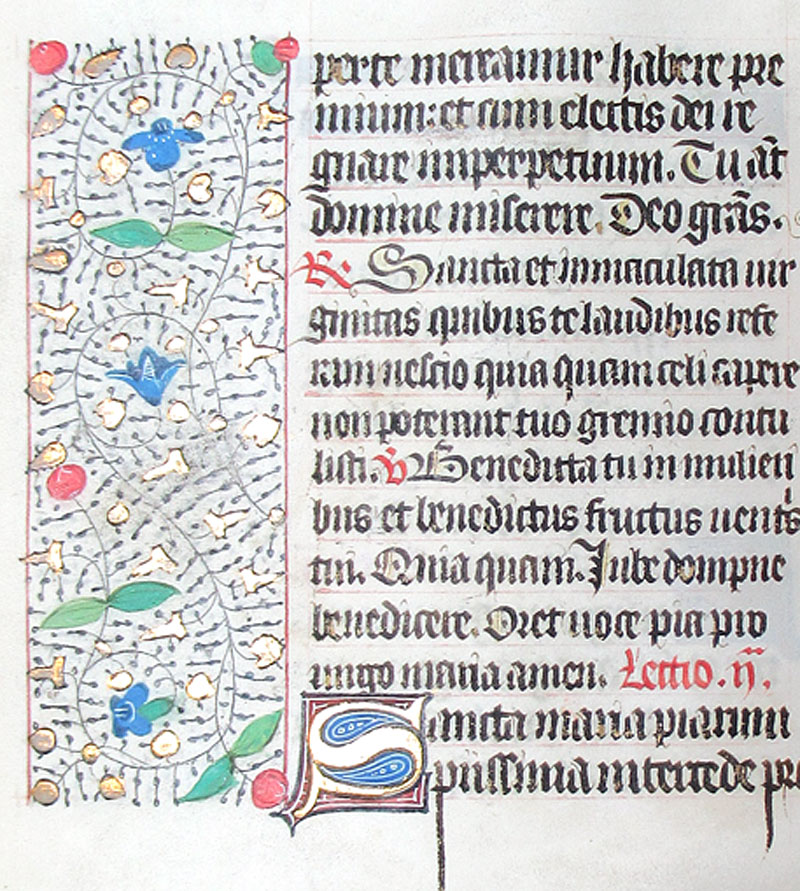 parte mereamur habere pre
mium: et cum electis dei re
gnare imperpetuum. Tu aut̄
domine miserere. Deo grās.
R. Sancta et immaculata uir
ginitas quibus te laudibus refe
ram nescio quia quam celi capere
non poterant tuo gremio contu
listi. V Benedicta tu in mulieri
bus et benedictus fructus uentris
tui. Quia quam. Jube dompne
benedicere. Oret uoce pia pro
uirgo maria amen. Lectio. ij.
Sancta maria piarum
piissima intercede pro